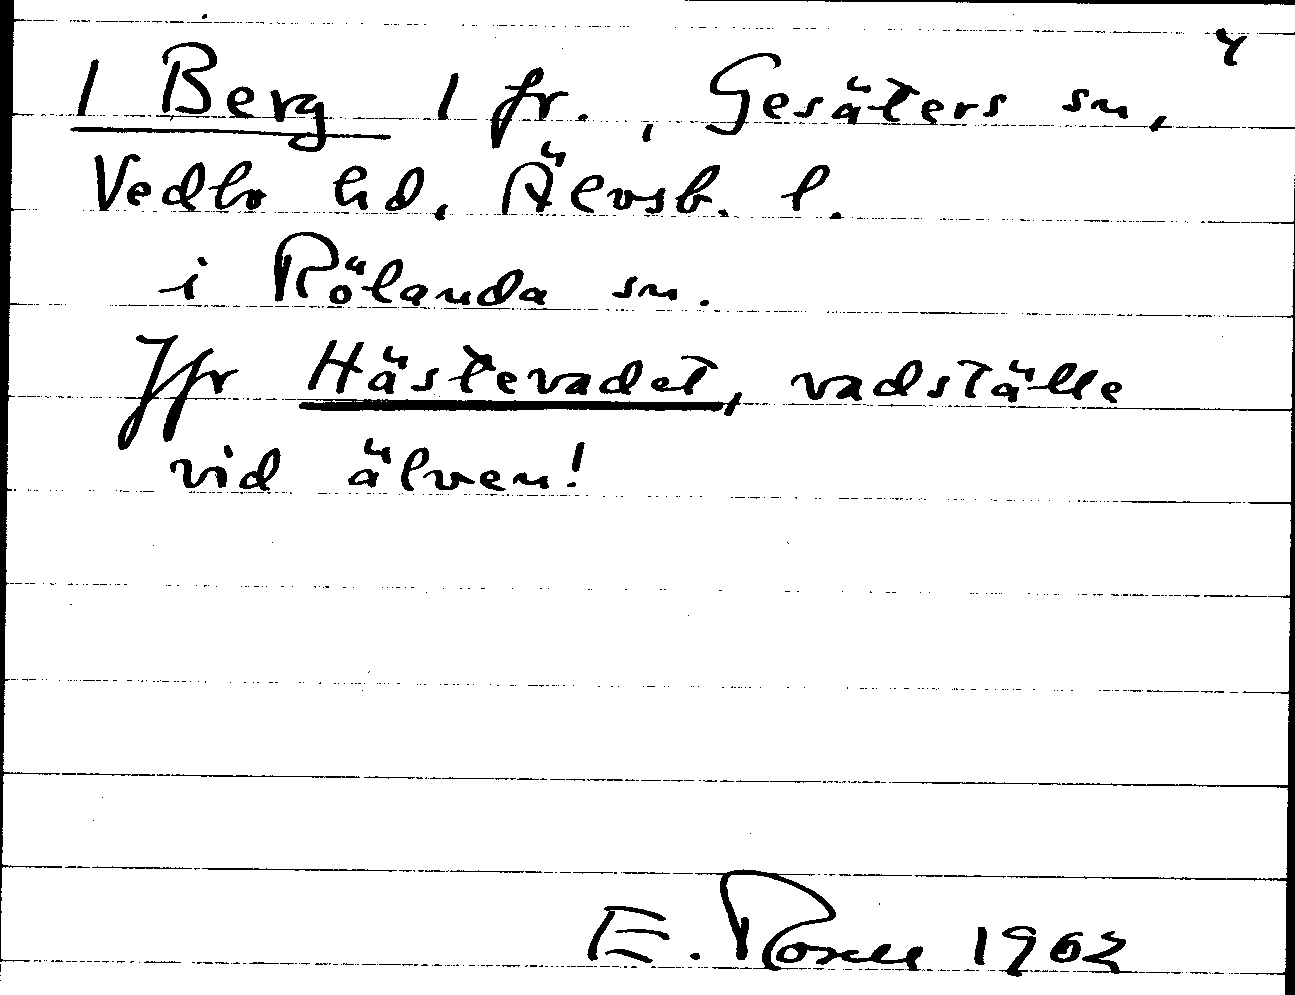 4
1 Berg 1 fr., Gesäters sn,
Vedbo hd, Älvsb. l.
i Rölanda sn.
Jfr Hästevadet, vadställe
vid älven!
E. Rosell 1962